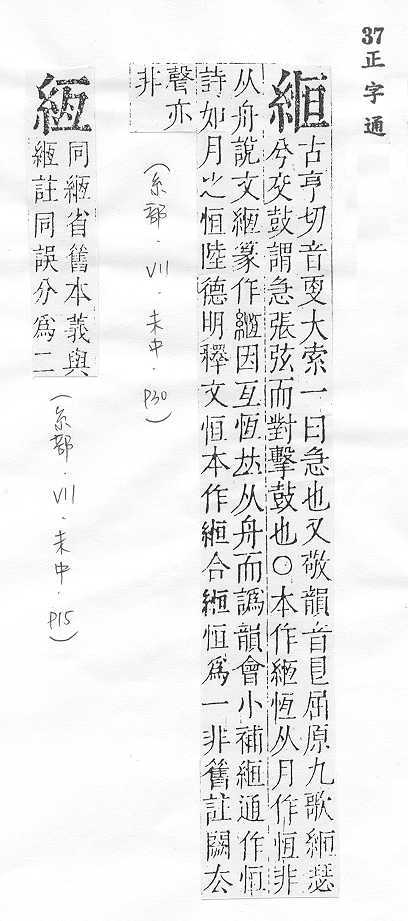 37正字通
緪
古亨切音㪅大索一曰急也又敬韻音亘屈原九歌緪瑟
兮交鼓謂急張弦而對擊鼓也○本作緪恆从月作恒非
从舟說文緪篆作緪因亙恆𠀤从舟而譌韻會小補緪通作恒
詩如月之恒陸德明釋文恒本作緪合緪恒為一非舊註闕厺
聲亦
非
(糸部.VII.未中.P30)
絚
同緪省舊本義與
緪註同誤分為二
(糸部.VII.未中.P15)